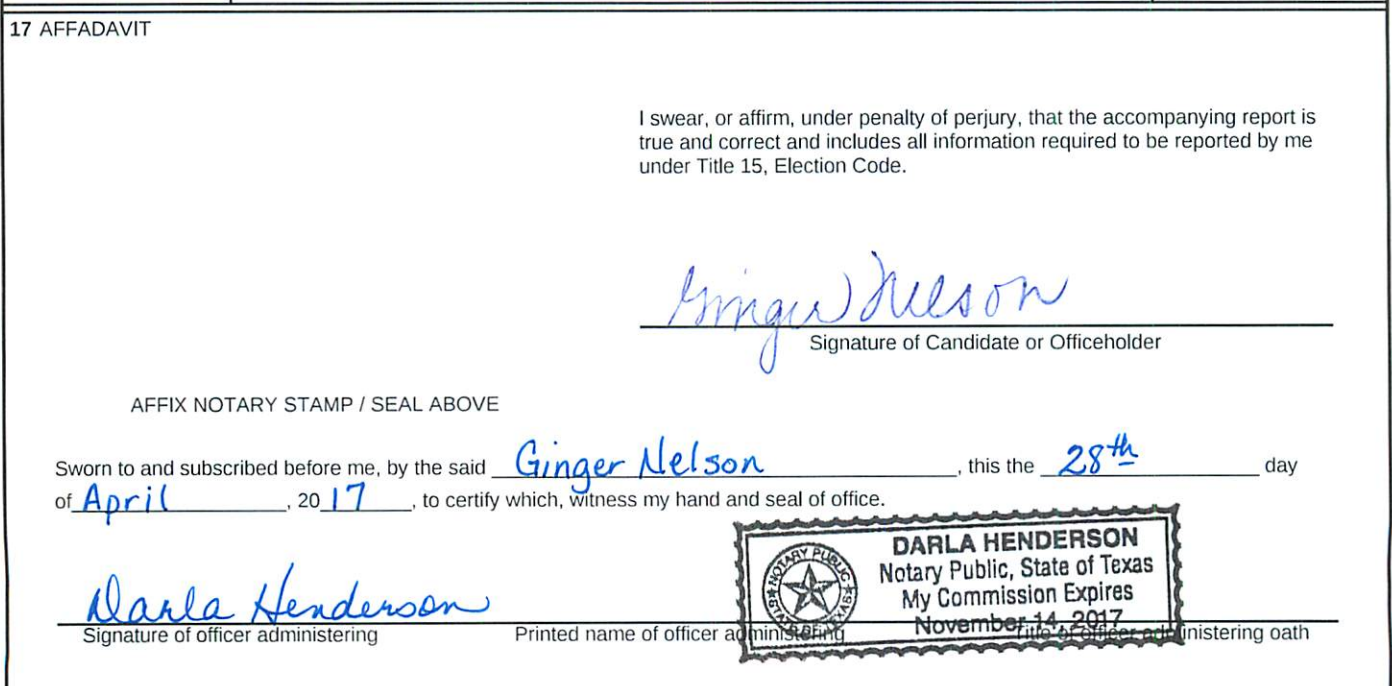 17 AFFADAVIT
I swear, or affirm, under penalty of perjury, that the accompanying report is
true and correct and includes all information required to be reported by me
under Title 15, Election Code.
Ginger Nelson
Signature of Candidate or Officeholder
AFFIX NOTARY STAMP / SEAL ABOVE
Sworn to and subscribed before me, by the said Ginger Nelson, this the 28th day
of April, 2017, to certify which, witness my hand and seal of office.
DARLA HENDERSON
Notary Public, State of Texas
My Commission Expires
November 14, 2017
NOTARY PUBLIC
STATE OF TEXAS
Darla Henderson
Signature of officer administering Printed name of officer administering Title of officer administering oath